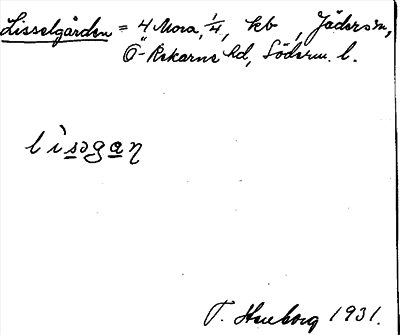 Lisselgården = 4 Mora, 1/4, kb, Jäders sn,
Ö-Rekarne hd, Söderm. l.
lìsəgaη
T. Hneborg 1931.